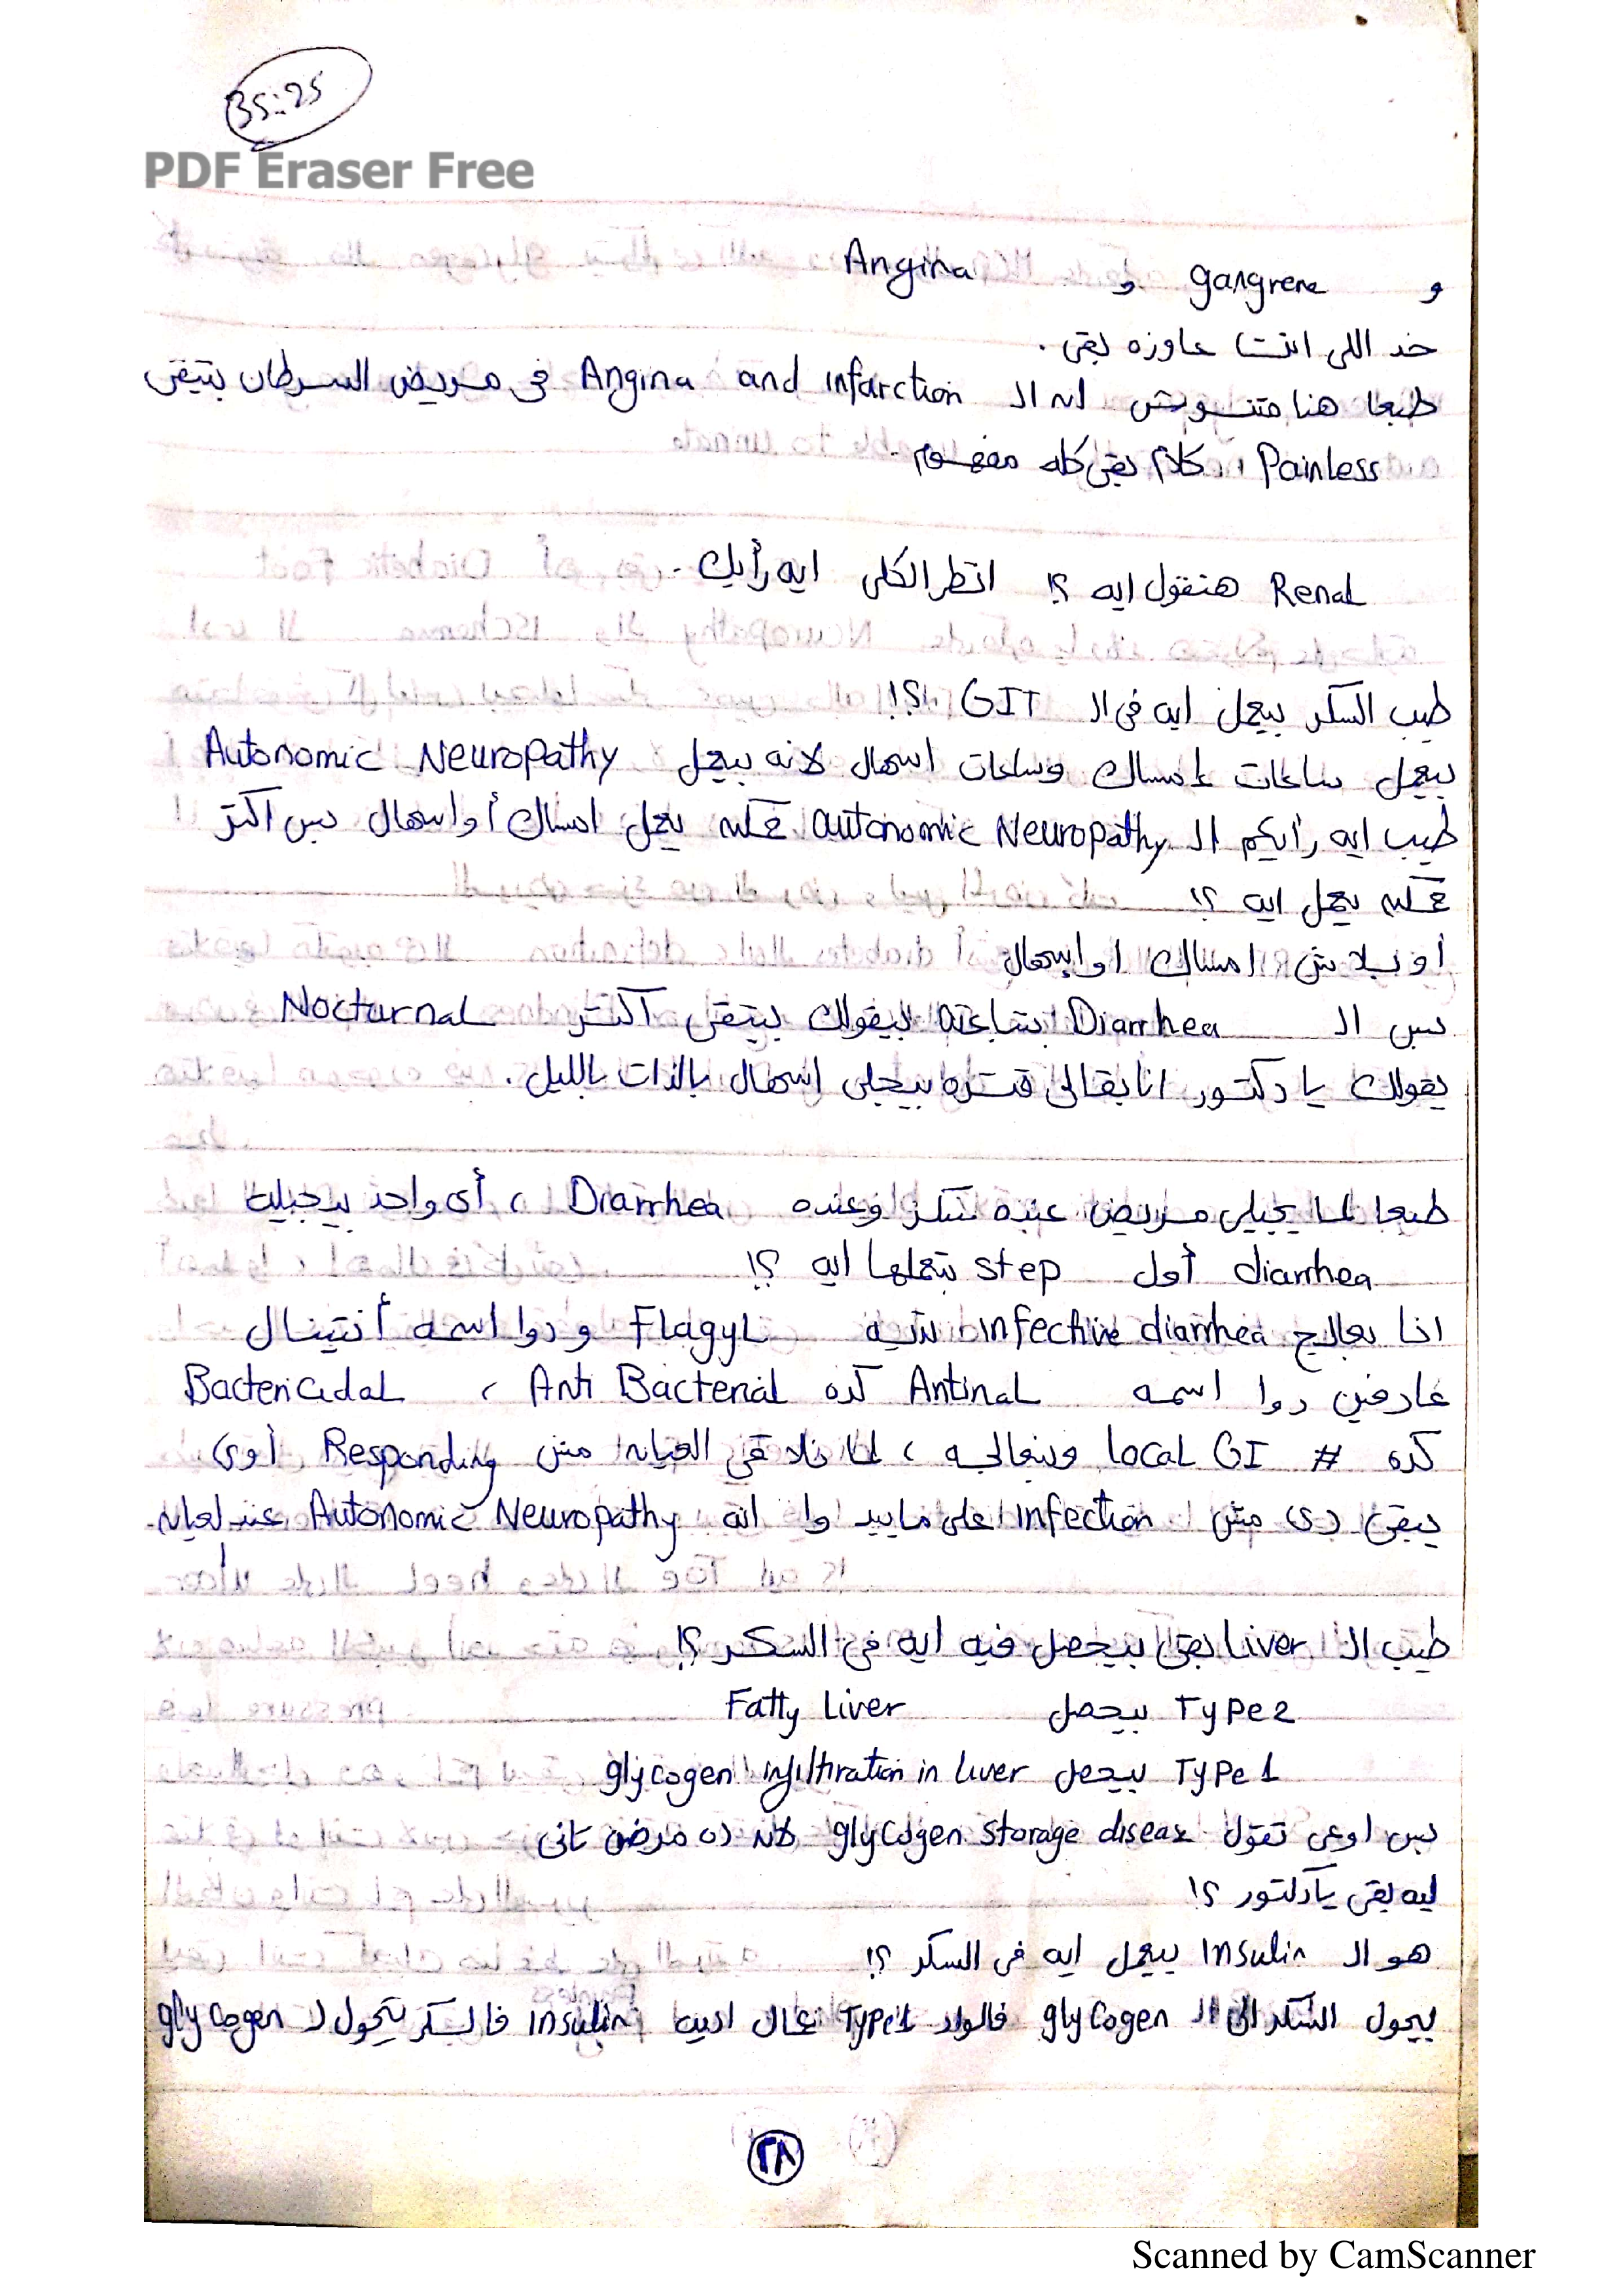 35:25
PDF Eraser Free
و gangrene و Angina
خد اللى انت عاوزه بقى .
طبعا هنا متنسوش ان ال Angina and infarction فى مريض السرطان بتبقى
Painless ،، كلام بقى كله مفهوم .
Renal هنقول ايه ؟! انظر الكلى ايه رأيك .
طيب السكر بيعمل ايه فى ال GIT ؟!!
بيعمل ساعات إمساك وساعات اسهال لانه بيعمل Autonomic Neuropathy
طيب ايه رأيكم ال autonomic Neuropathy ممكن يعمل امساك أو اسهال بس اكتر
ممكن يعمل ايه ؟!
أو بلاش امساك او اسهال
بس ال Diarrhea بتاعته بيقولك بيتبقى اكتر Nocturnal
يقولك يا دكتور انا بقالى فتره بيجيلى اسهال بالذات بالليل .
طبعا لما يجيلى مريض عنده سكر وعنده Diarrhea ، أى واحد بيجيله
diarrhea أول step بتعملها ايه ؟!
انا بعالج infective diarrhea بديه Flagyl ودوا اسمه أنتينال
عارفين دوا اسمه Antinal كده Anti Bacterial ، Bactericidal
كده # local GI وبنعالجه ، لما نلاقى العيان مش Responding أوى
يبقى دى مش infection على مايبدوا انه Autonomic Neuropathy عند لعيان
طيب ال Liver بقى بيحصل فيه ايه فى السكر ؟!
Type 2 بيحصل Fatty Liver
Type 1 بيحصل glycogen infiltiration in liver
بس اوعى تقول glycogen storage disease لانه ده مرض تانى
ليه بقى يا دكتور ؟!
هو ال Insulin بيعمل ايه فى السكر ؟!
بيحول السكر الى ال glycogen فالواد Type 1 عمال اديله insulin فالسكر يتحول ل glycogen
٢٨
Scanned by CamScanner